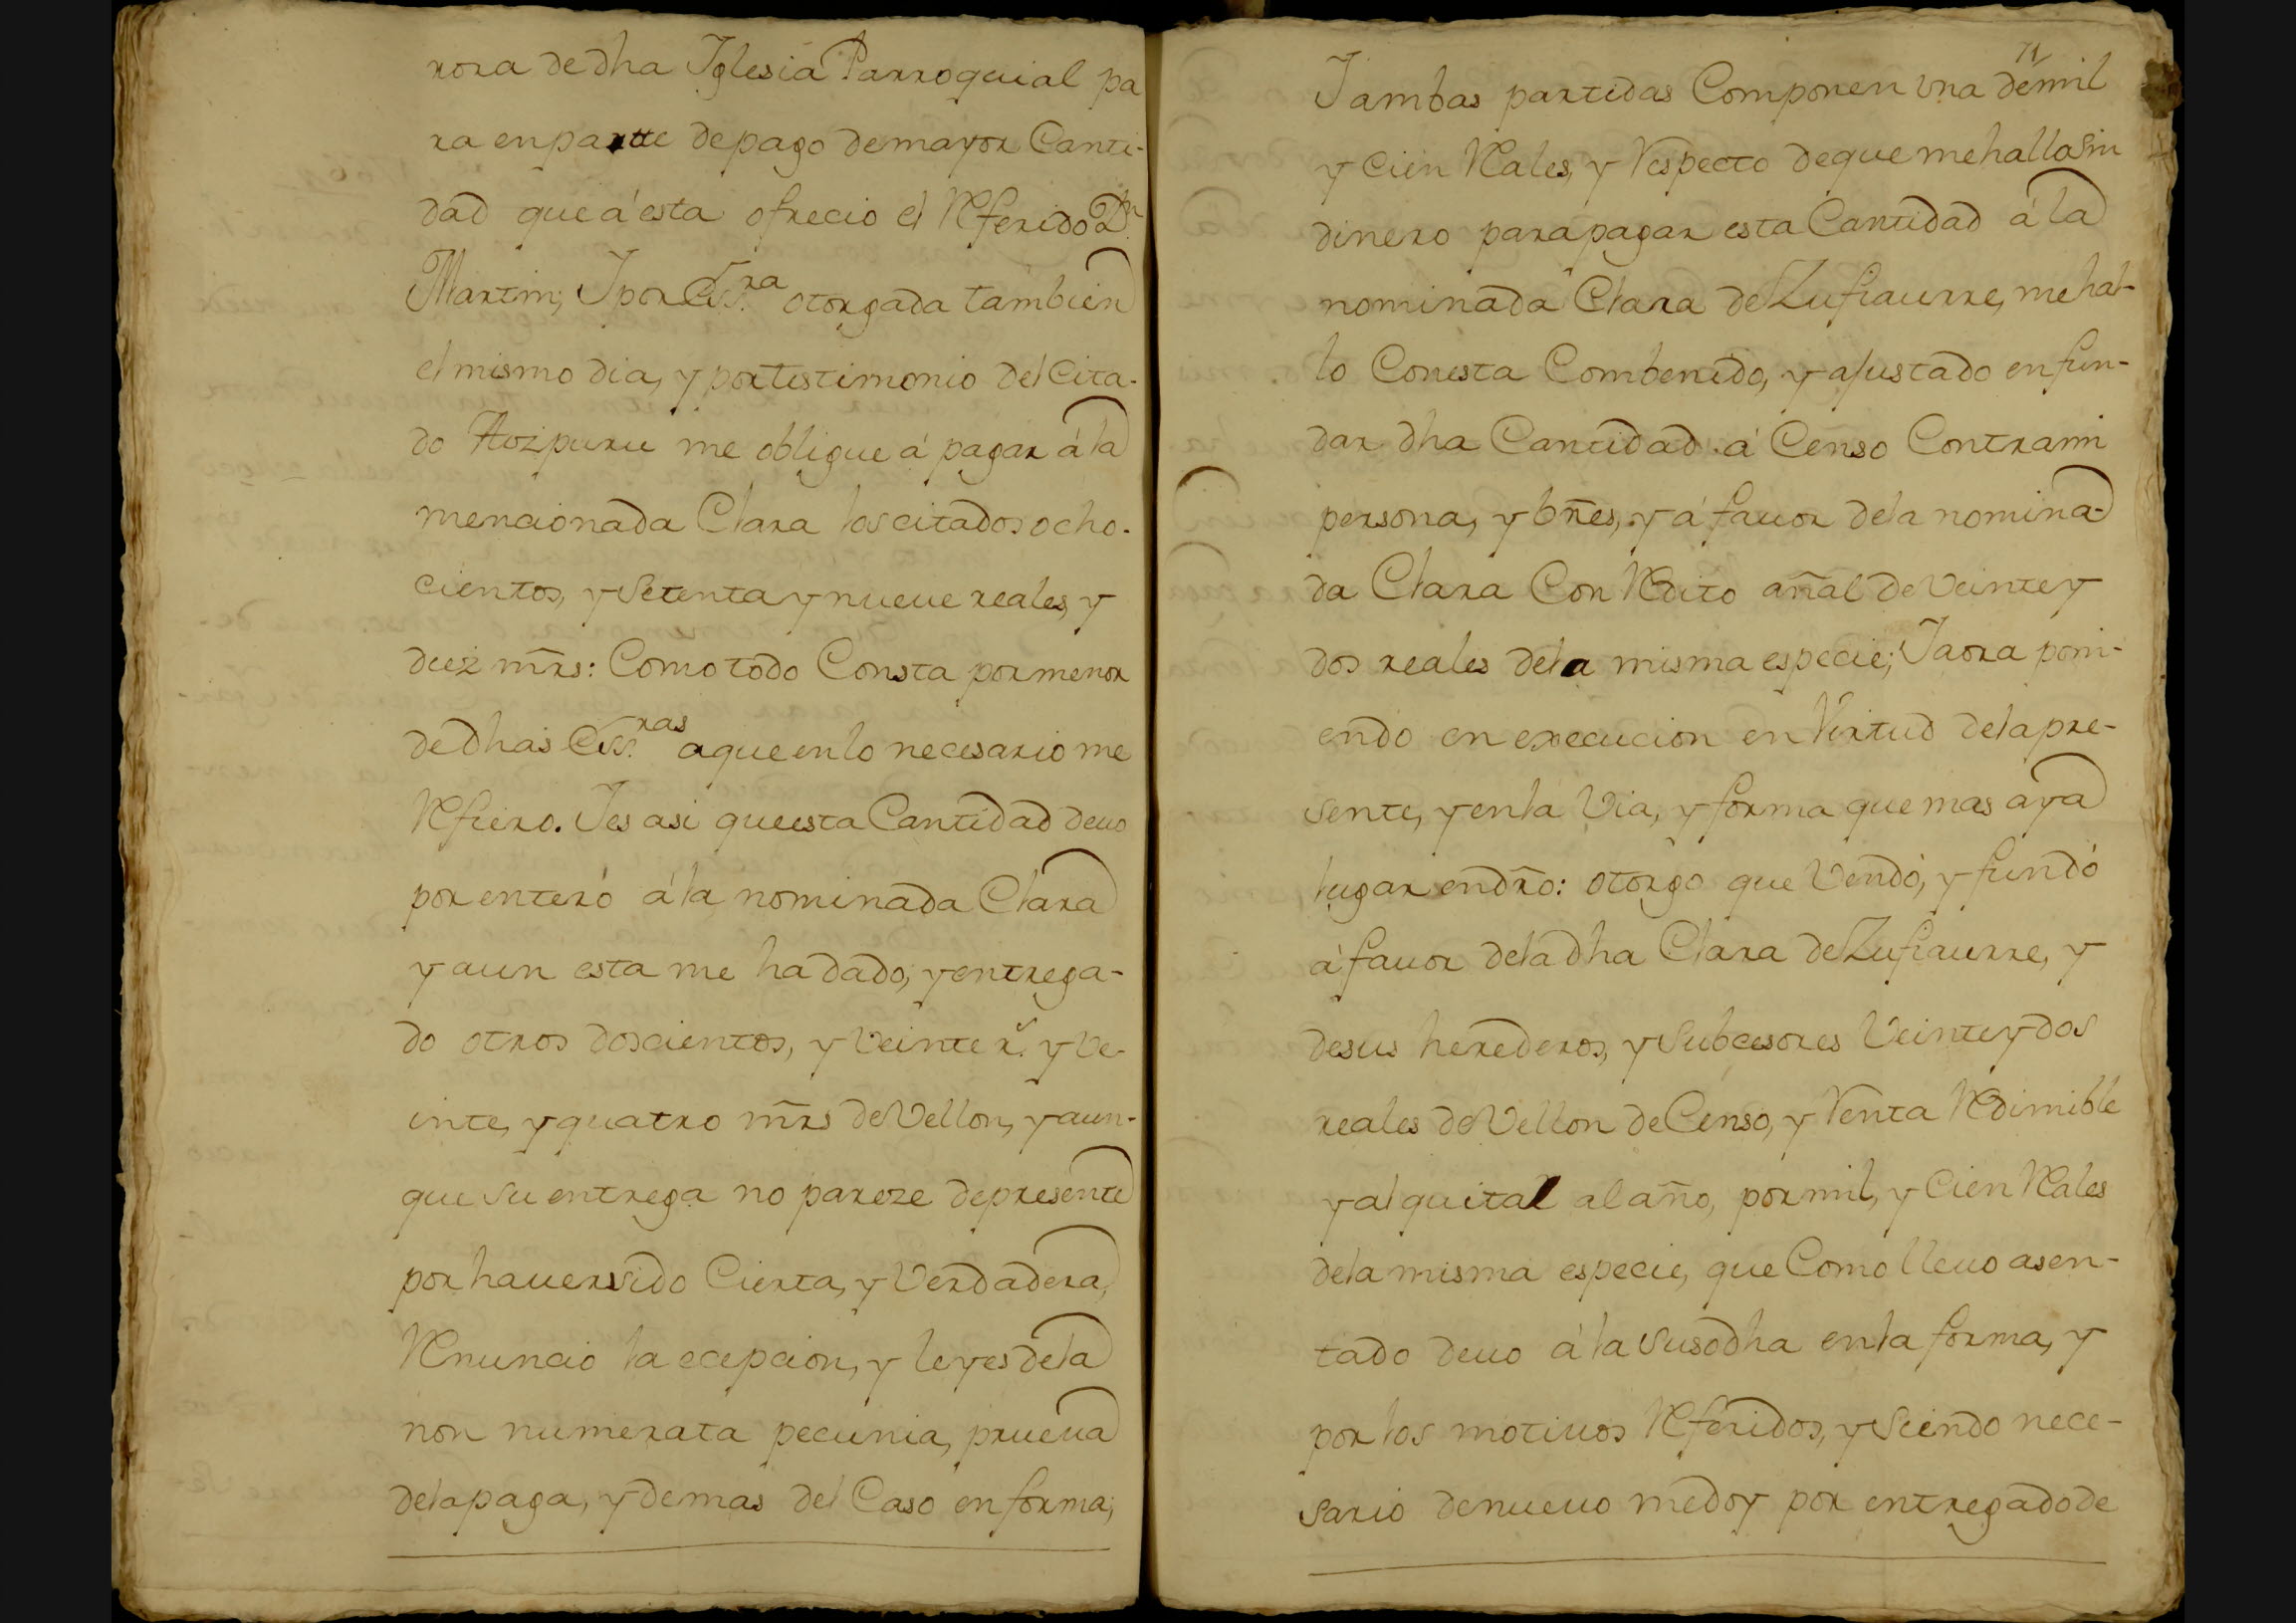 rora de dha Iglesia Parroquial pa
ra en partte de pago de mayor Canti-
dad que á esta ofrecio el Referido Dn.
Martin; I por Ess.ra otorgada tambien
el mismo dia, y por testimonio del Cita-
do Aozpuru me obligue á pagar á la
mencionada Clara los citados ocho-
cientos, y setenta y nueue reales, y
diez mrs: Como todo Consta por menor
de dhas Ess.ras a que en lo necesario me
Refiero. I es asi que esta Cantidad deuo
por entero á la nominada Clara
y aun esta me ha dado, y entrega-
do otros doscientos, y Veinte r.s y Ve-
inte, y quatro mrs de Vellon, y aun-
que su entrega no pareze de presente
por hauer sido Cierta, y Verdadera,
Renuncio la ecepcion, y leyes de la
non numerata pecunia, prueua
de la paga, y demas del Caso en forma;
71
I ambas partidas Componen vna de mil
y Cien Reales, y Respecto de que me hallo sin
dinero para pagar esta Cantidad á la
nominada Clara de Zufiaurre, me hal-
lo Con esta Combenido, y ajustado en fun-
dar dha Cantidad á Censo Contra mi
persona, y bñes, y á fauor de la nomina-
da Clara Con Redito añal de Veinte y
dos reales de la misma especie; I aora poni-
endo en execucion en Virtud de la pre-
sente, y en la Via, y forma que mas aya
lugar en dro: otorgo que Vendo, y fundo
á fauor de la dha Clara de Zufiaurre, y
de sus herederos, y Subcesores Veinte y dos
reales de Vellon de Censo, y Venta Redimible
y al quital al año, por mil, y Cien Reales
de la misma especie, que Como lleuo asen-
tado deuo á la susodha en la forma, y
por los motiuos Referidos, y siendo nece-
sario de nueuo me doy por entregado de